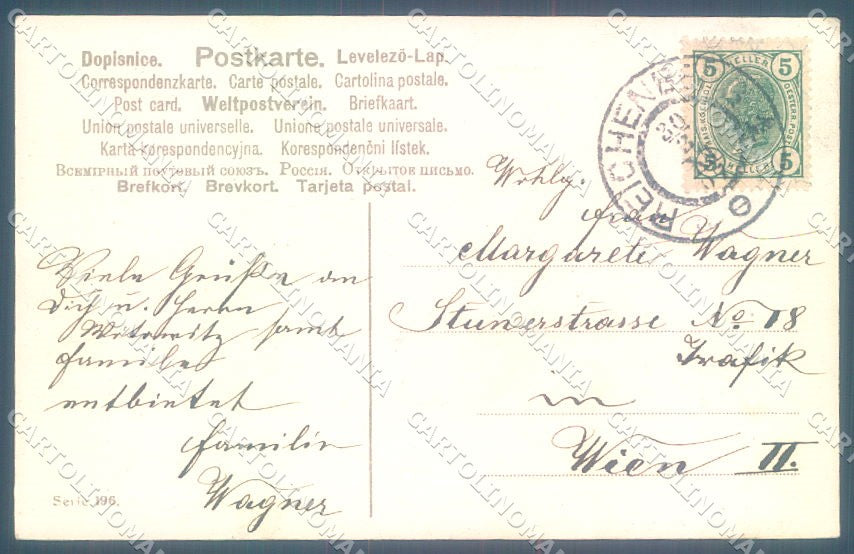 Dopisnice. Postkarte. Levelező-Lap.
Correspondenzkarte. Carte postale. Cartolina postale.
Post card. Weltpostverein. Briefkaart.
Union postale universelle. Unione postale universale.
Karta korespondencyjna. Korespondenční lístek.
Всемірный почтовый союзъ. Россія. Открытое письмо.
Brefkort. Brevkort. Tarjeta postal.
5 HELLER 5
5 HELLER 5
REICHENAU
30
Wohlg.
Frau
Margarete Wagner
Stuwerstrasse No 18
Trafik
in
Wien II.
Viele Grüße an
Dich u. Herrn
samt
Familie
entbietet
Familie
Wagner
Serie 196.
CARTOLINOMANIA